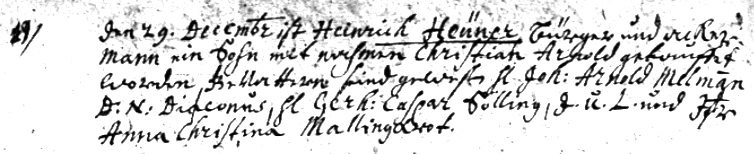 49/ den 29. Decembr ist Heinrich Heüner bürger und acker-
mann ein Sohn mit nahmen Christian Arnold getaufft
worden, Gevattern sind gewest H Joh: Arnold Melman
D. N: Diaconus, H Gerh: Caspar Sölling, J. U. L. und Jfr
Anna Christina Mallingkrot.